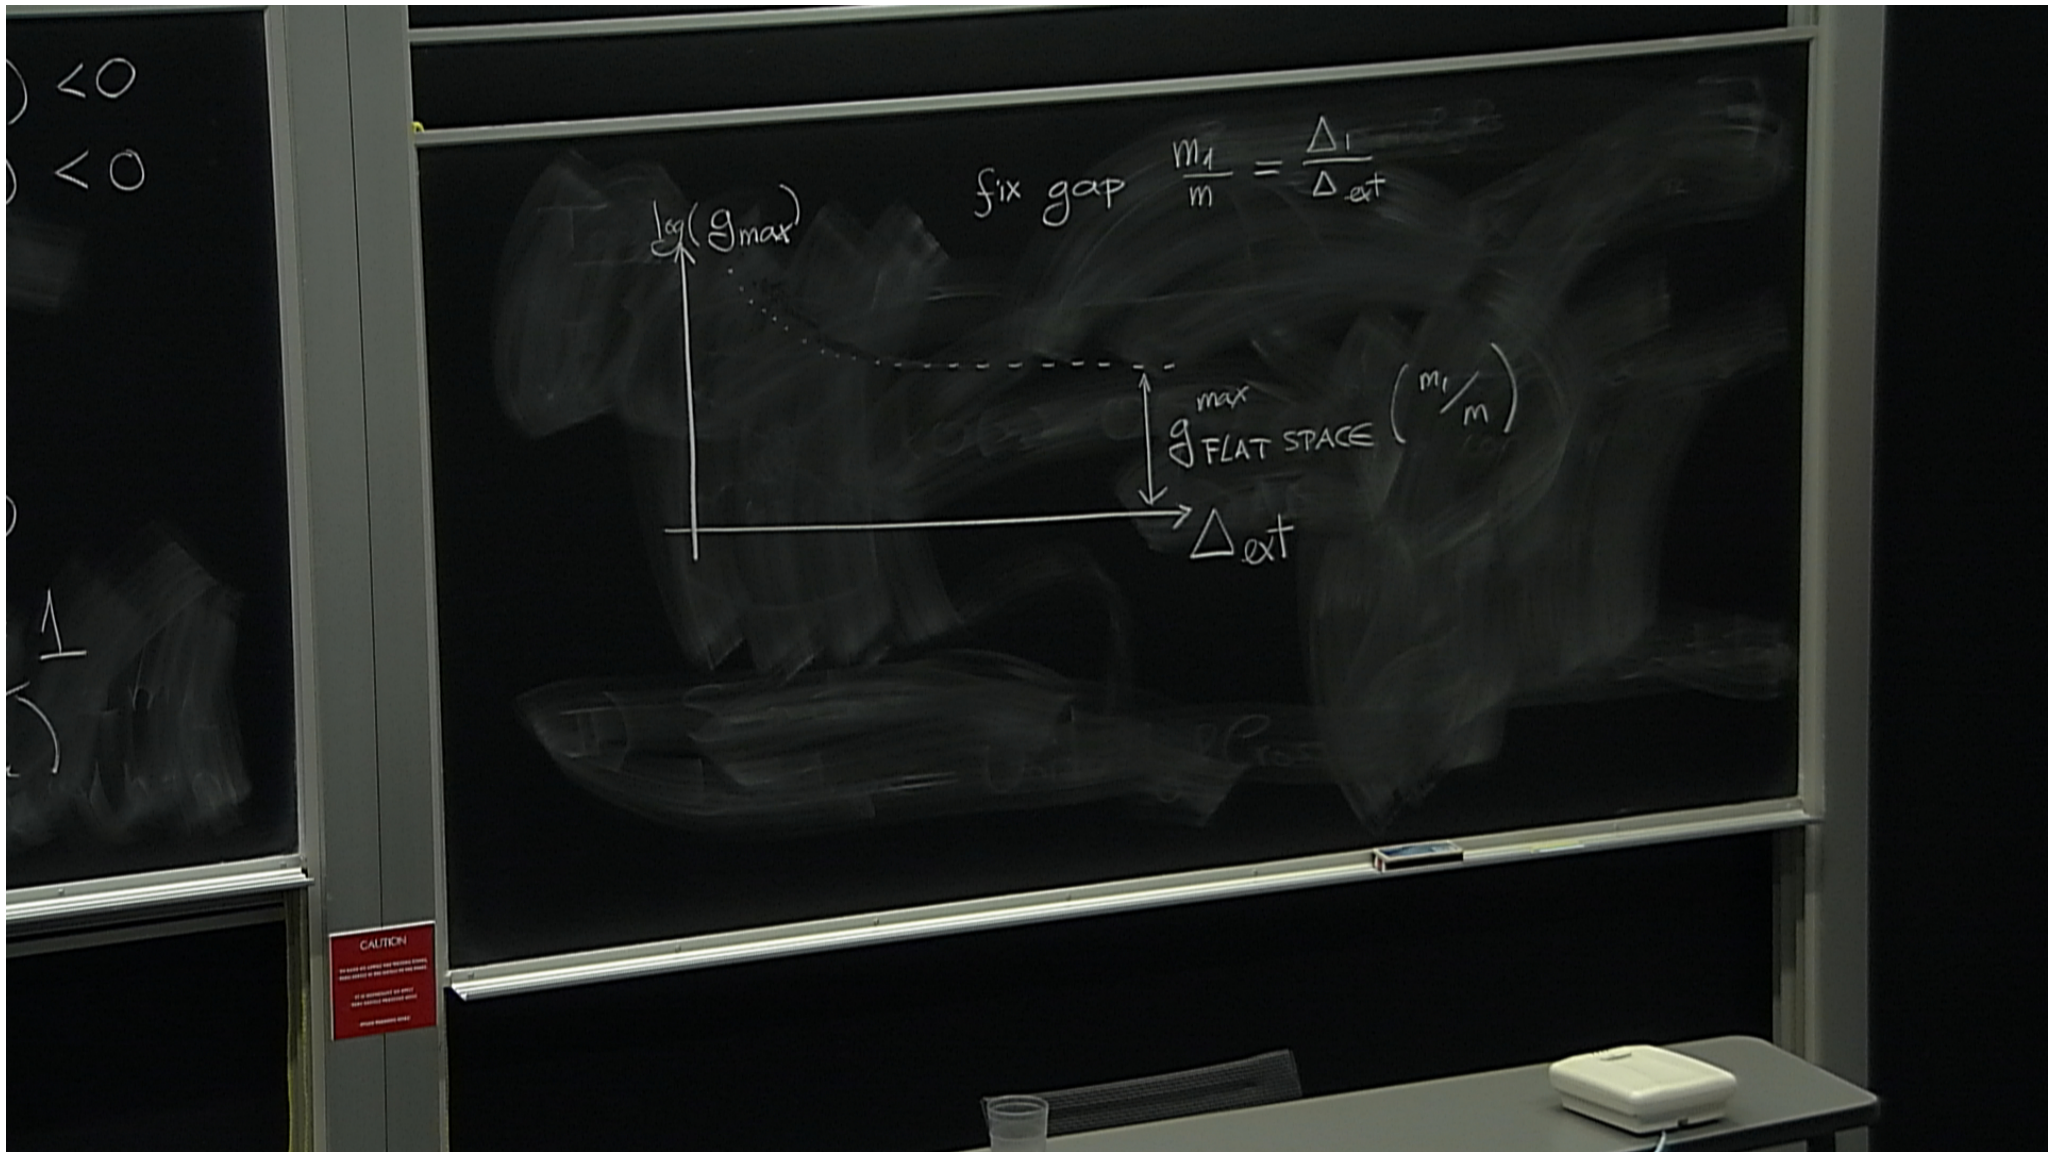 ) <0
) <0
)
1
)
fix gap m₁/m = Δ₁/Δext
log(gmax)
g^max FLAT SPACE (m₁/m)
Δext
CAUTION